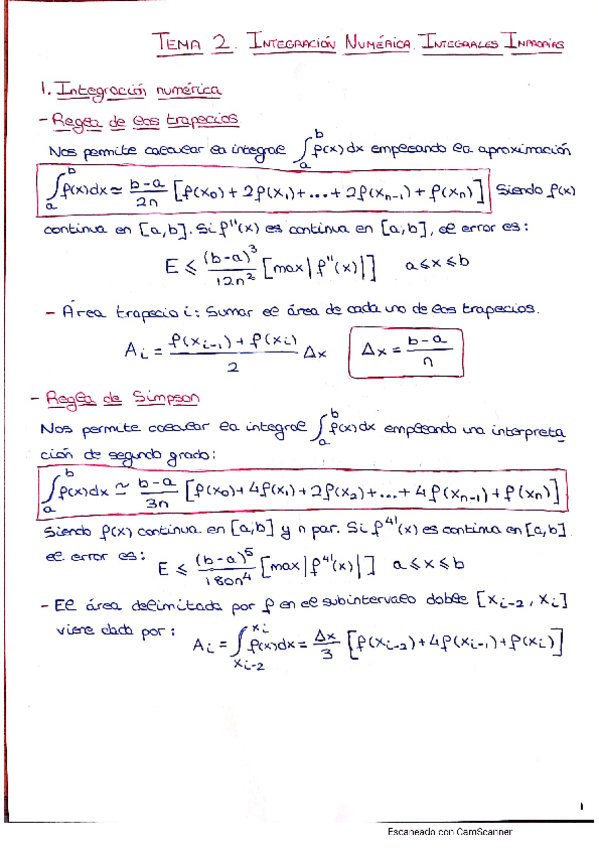 TEMA 2. INTEGRACIÓN NUMÉRICA. INTEGRALES IMPROPIAS
1. Integración numérica
- Regla de los trapecios
Nos permite calcular la integral ∫_a^b f(x) dx empleando la aproximación
∫_a^b f(x)dx ≃ (b-a)/(2n) [f(x₀) + 2f(x₁) + ... + 2f(xₙ₋₁) + f(xₙ)] Siendo f(x)
continua en [a,b]. Si f''(x) es continua en [a,b], el error es:
E ≤ (b-a)³/(12n²) [max|f''(x)|] a≤x≤b
- Área trapecio i: Sumar el área de cada uno de los trapecios.
Aᵢ = (f(xᵢ₋₁) + f(xᵢ))/2 Δx Δx = (b-a)/n
- Regla de Simpson
Nos permite calcular la integral ∫_a^b f(x)dx empleando una interpreta
ción de segundo grado:
∫_a^b f(x)dx ≃ (b-a)/(3n) [f(x₀) + 4f(x₁) + 2f(x₂) + ... + 4f(xₙ₋₁) + f(xₙ)]
Siendo f(x) continua en [a,b] y n par. Si f⁴'(x) es continua en [a,b].
el error es: E ≤ (b-a)⁵/(180n⁴) [max|f⁴'(x)|] a≤x≤b
- El área delimitada por f en el subintervalo doble [xᵢ₋₂, xᵢ]
viene dada por: Aᵢ = ∫_{xᵢ₋₂}^{xᵢ} f(x)dx = Δx/3 [f(xᵢ₋₂) + 4f(xᵢ₋₁) + f(xᵢ)]
1
Escaneado con CamScanner